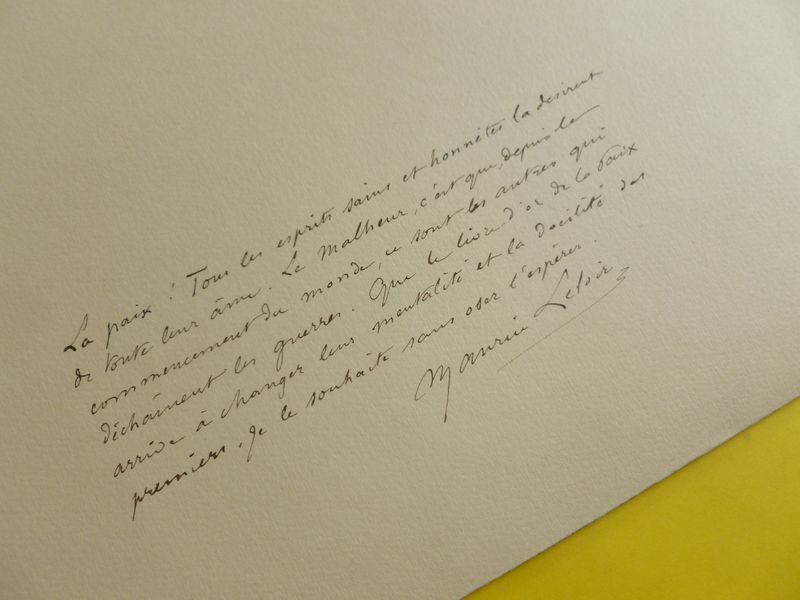 La paix ! Tous les esprits sains et honnêtes la désirent
de toute leur âme. Le malheur, c'est que, depuis le
commencement du monde, ce sont les autres qui
déchaînent les guerres. Que le livre d'or de la Paix
arrive à changer leur mentalité et la docilité des
premiers. Je le souhaite sans oser l'espérer.
Maurice Leloir